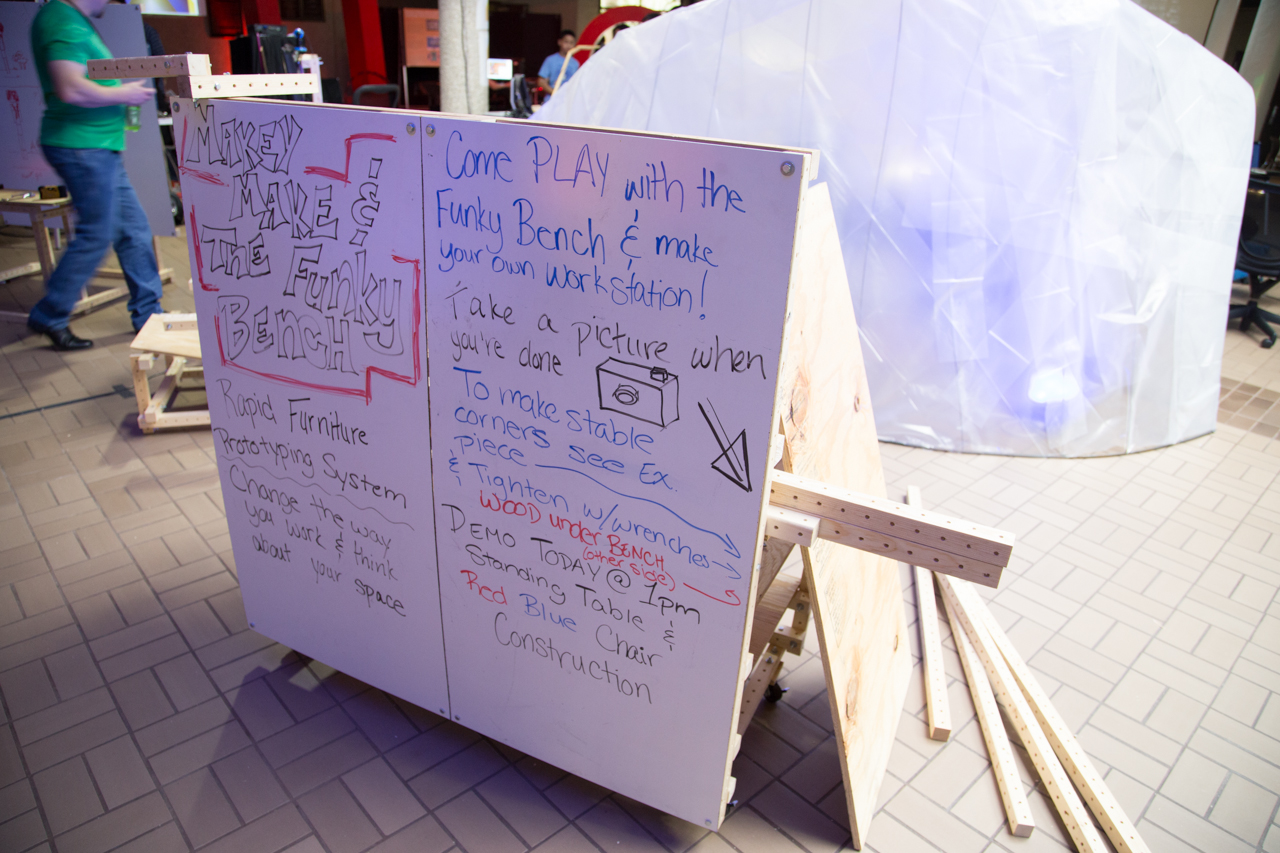 MAKEY
MAKE &
THE Funky
BENCH
Rapid Furniture
Prototyping System
Change the way
you work & think
about your space
Come PLAY with the
Funky Bench & make
your own workstation!
Take a picture when
you're done
To make stable
corners see Ex.
piece
& Tighten w/wrenches
WOOD under BENCH
(other side)
DEMO TODAY @ 1pm
Standing Table &
Red Blue Chair
Construction